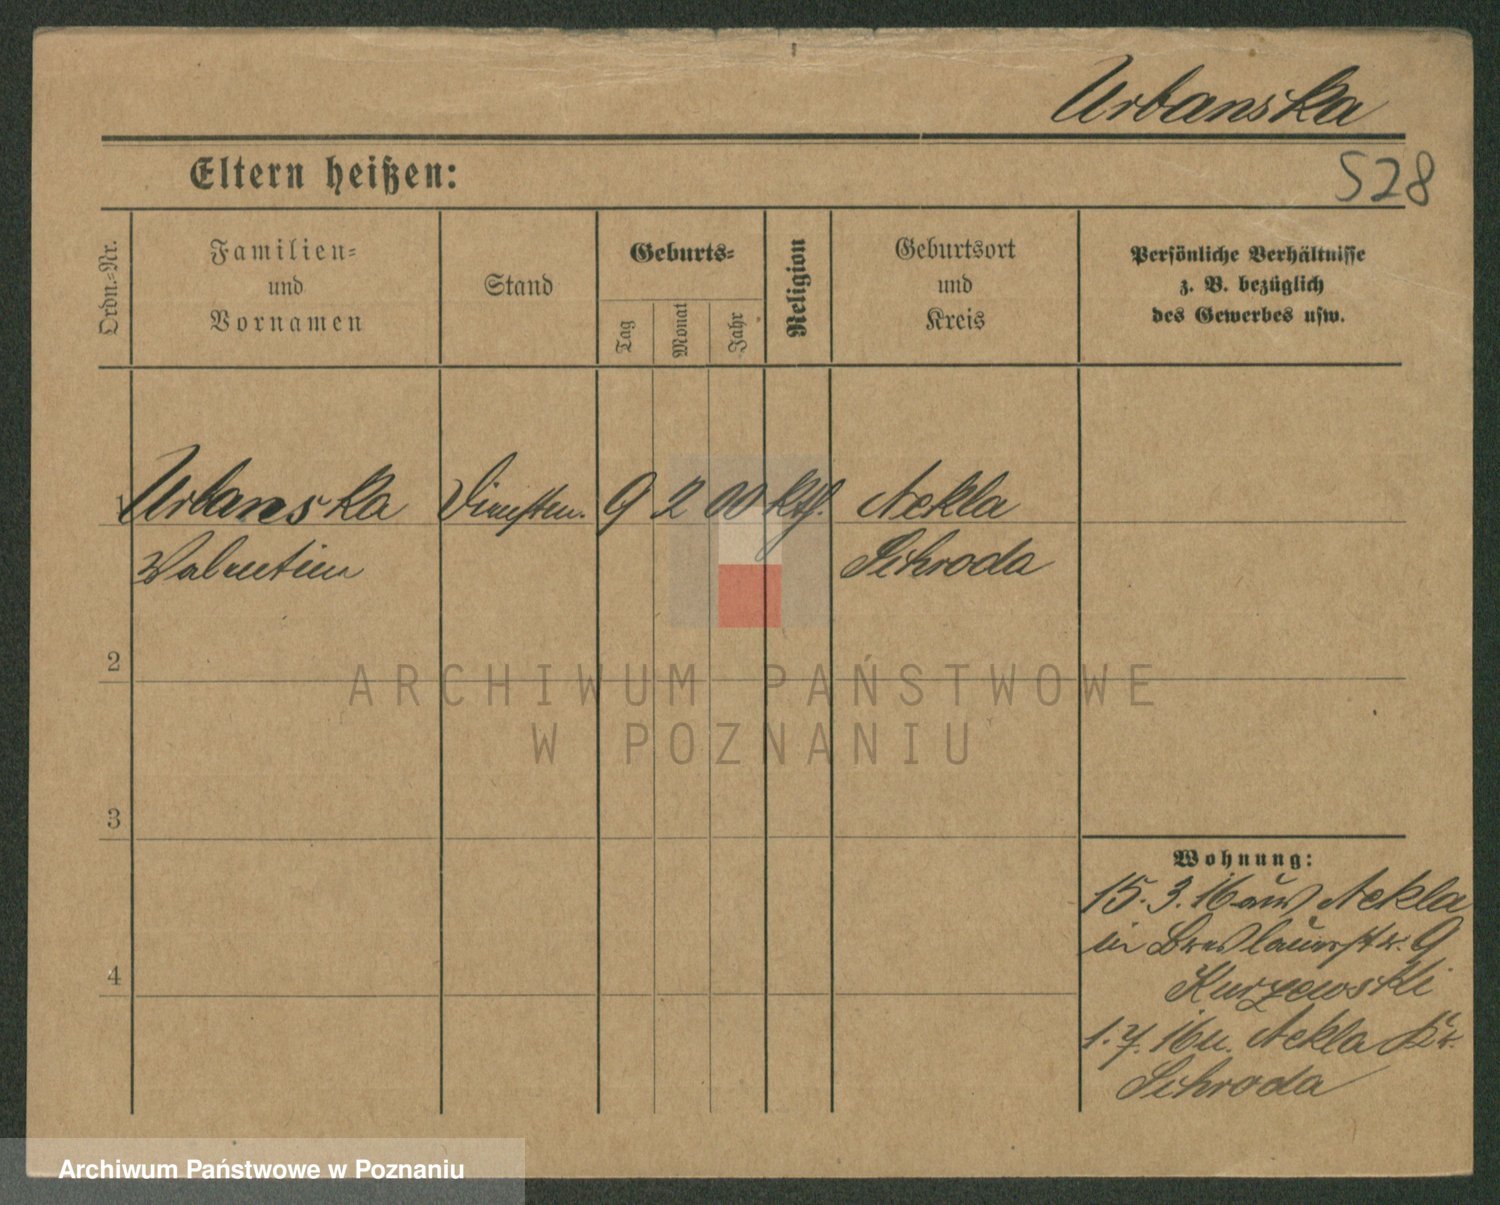 Urbanska
Eltern heißen:
528
Ordn.-Nr.
Familien-
und
Vornamen
Stand
Geburts-
Tag
Monat
Jahr
Religion
Geburtsort
und
Kreis
Persönliche Verhältnisse
z. B. bezüglich
des Gewerbes usw.
1 Urbanska Dienstm. 9 2 00 kth. Nekla
Valentine Schroda
2
3
4
Wohnung:
15. 3. 16 aus Nekla
in Breslauerstr. 9
Kurzewski
1. 7. 16 n. Nekla Kr.
Schroda
ARCHIWUM PAŃSTWOWE
W POZNANIU
Archiwum Państwowe w Poznaniu